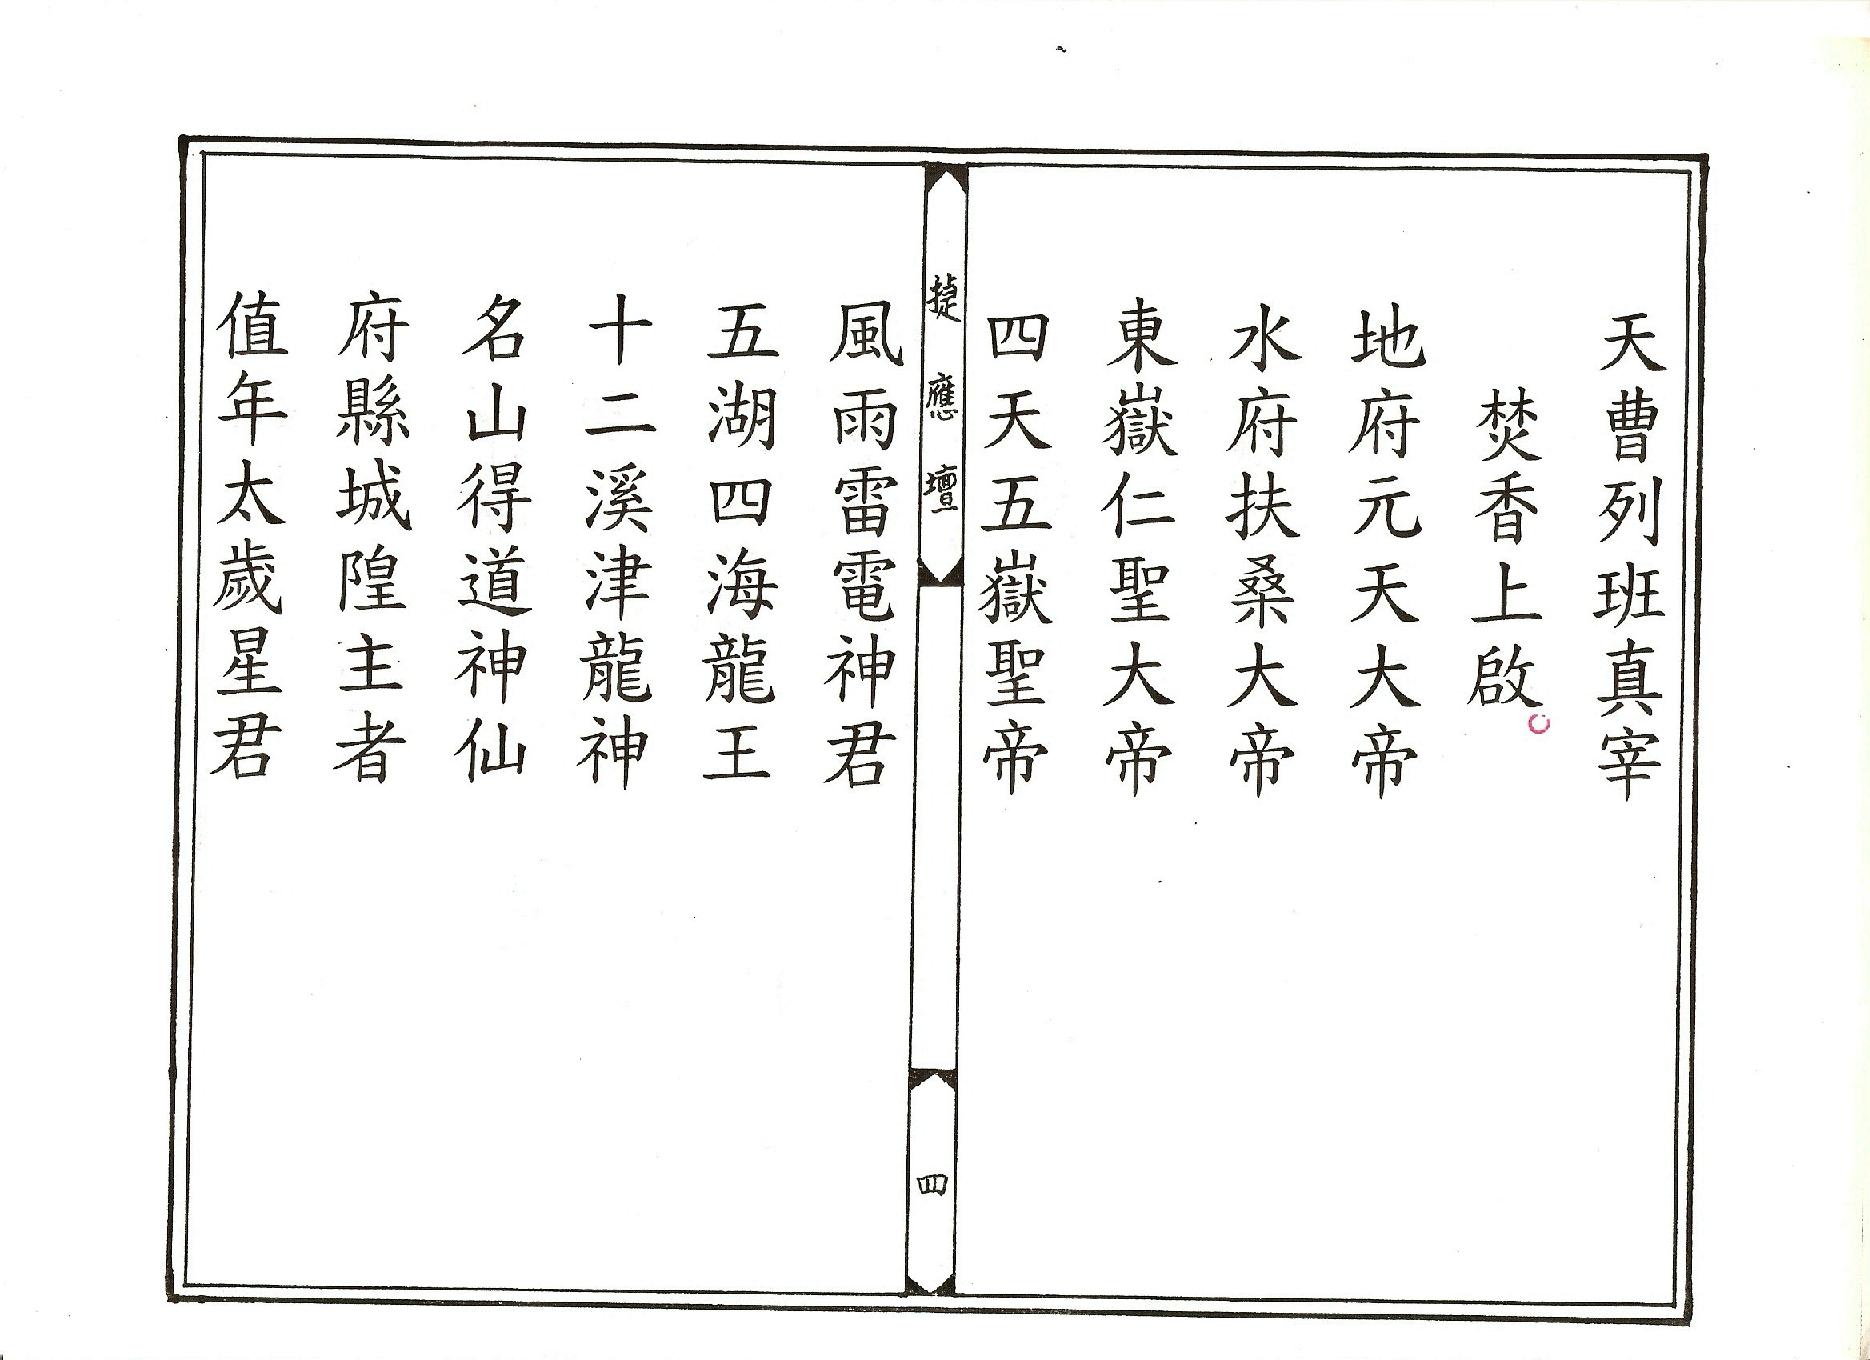 天曹列班真宰
焚香上啟
地府元天大帝
水府扶桑大帝
東嶽仁聖大帝
四天五嶽聖帝
捷應壇
四
風雨雷電神君
五湖四海龍王
十二溪津龍神
名山得道神仙
府縣城隍主者
值年太歲星君